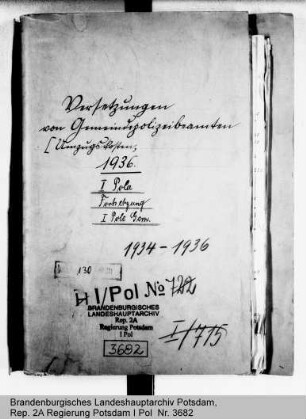 Versetzungen
von Gemeindepolizeibeamten
[Umzugskosten]
1936.
I Pola
Fortsetzung
I Pole Gem.
1934-1936
130
I/Pol No 722
BRANDENBURGISCHES
LANDESHAUPTARCHIV
Rep. 2A
Regierung Potsdam
I Pol
3682
I/775
Brandenburgisches Landeshauptarchiv Potsdam,
Rep. 2A Regierung Potsdam I Pol Nr. 3682